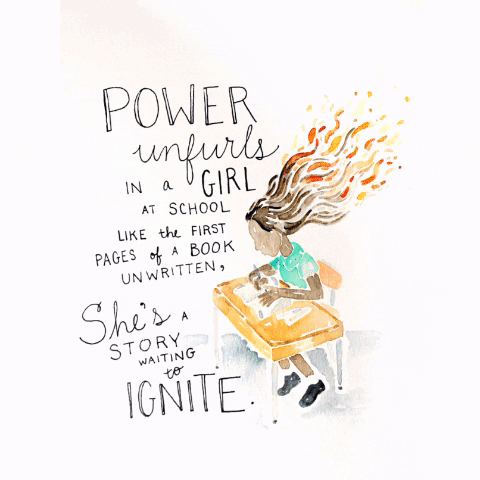 POWER
unfurls
IN a GIRL
AT SCHOOL
LIKE the FIRST
PAGES of A BOOK
UNWRITTEN,
She's A
STORY
WAITING
to
IGNITE.